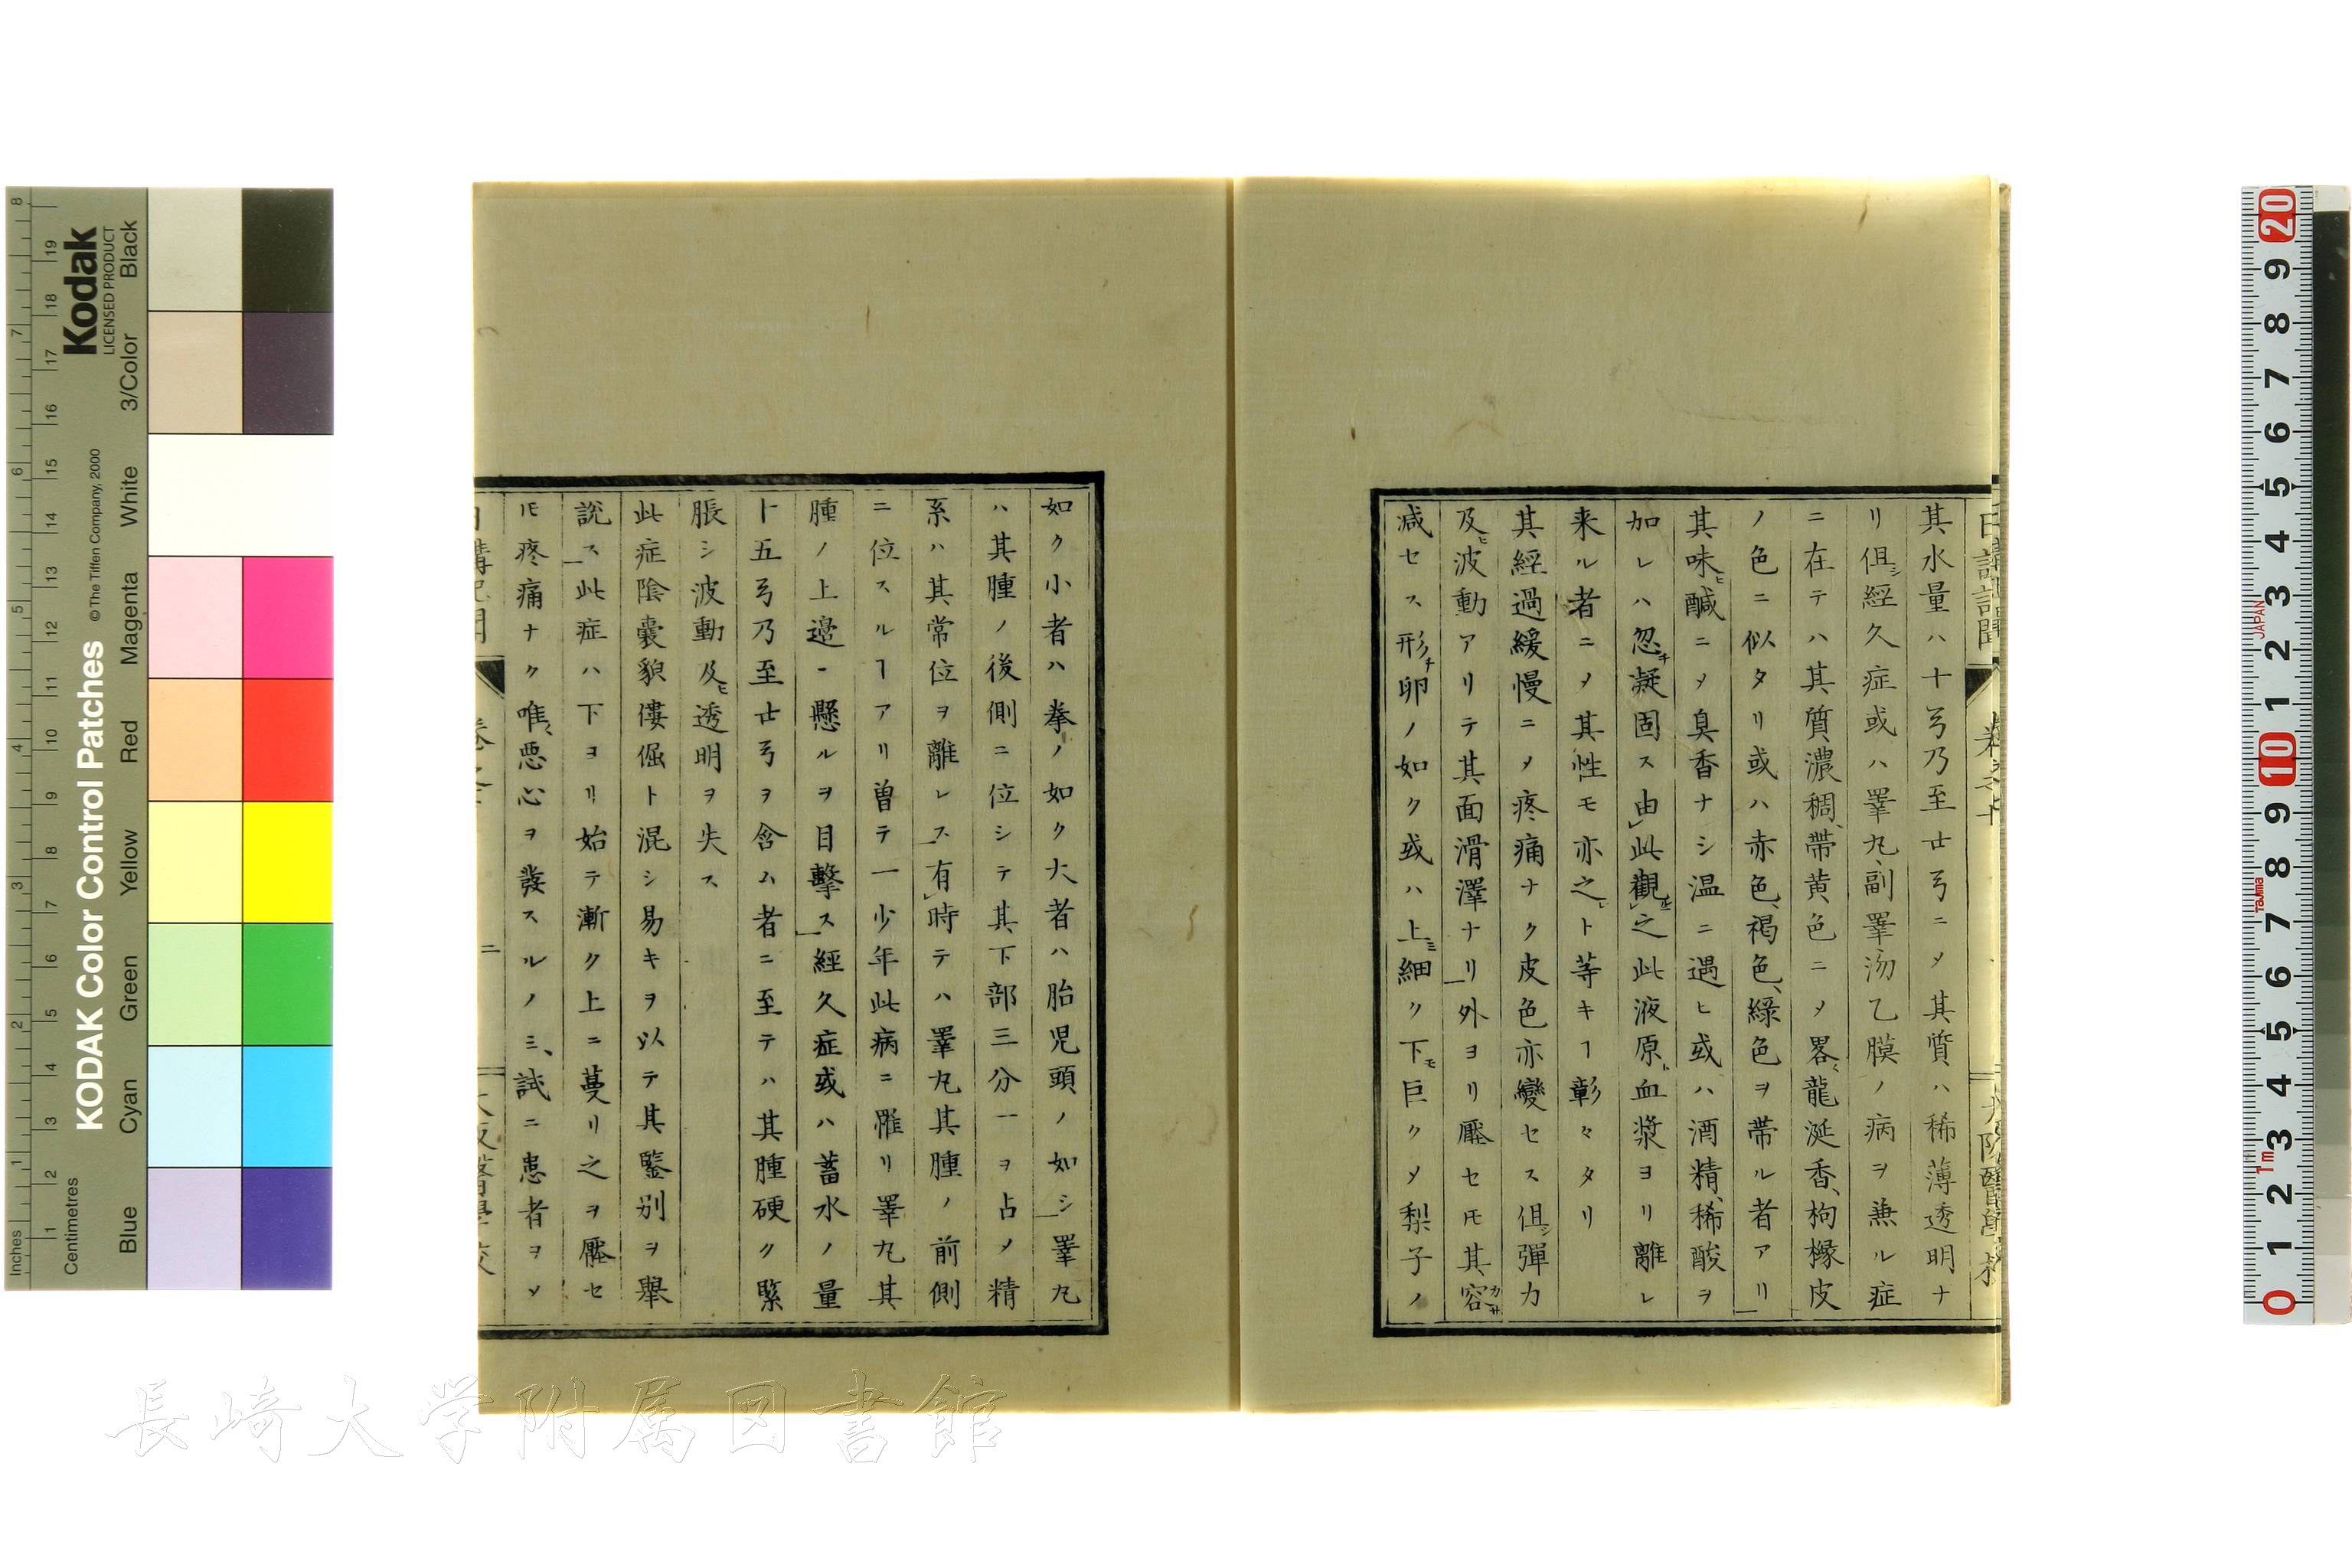 其水量ハ十弓乃至廿弓ニ〆其質ハ稀薄透明ナ
リ但シ經久症或ハ睪丸、副睪汤乙膜ノ病ヲ兼ル症
ニ在テハ其質濃稠、帶黄色ニ〆畧、龍涎香、枸櫞皮
ノ色ニ似タリ或ハ赤色、褐色、綠色ヲ帶ル者アリ」
其味ヒ鹹ニ〆臭香ナシ温ニ遇ヒ或ハ酒精、稀酸ヲ
加レハ忽チ凝固ス由此觀之此液原ト血漿ヨリ離レ
来ル者ニ〆其性モ亦之レト等キヿ彰々タリ
其經過緩慢ニ〆疼痛ナク皮色亦變セス但シ彈力
及ヒ波動アリテ其面滑澤ナリ」外ヨリ壓セ𪜈其容カサ
減セス形チ卵ノ如ク或ハ上ミ細ク下モ巨ク〆梨子ノ
如ク小者ハ拳ノ如ク大者ハ胎児頭ノ如シ」睪丸
ハ其腫ノ後側ニ位シテ其下部三分一ヲ占〆精
系ハ其常位ヲ離レス」有時テハ睪丸其腫ノ前側
ニ位スルヿアリ曽テ一少年此病ニ罹リ睪丸其
腫ノ上邉ニ懸ルヲ目擊ス」經久症或ハ蓄水ノ量
十五弓乃至廿弓ヲ含ム者ニ至テハ其腫硬ク緊
脹シ波動及ヒ透明ヲ失ス
此症陰嚢貌僂倔ト混シ易キヲ以テ其鑒别ヲ舉
説ス」此症ハ下ヨリ始テ漸ク上ニ蔓リ之ヲ壓セ
𪜈疼痛ナク唯、悪心ヲ發スルノミ、試ニ患者ヲ〆
日講記聞
卷之十
二
大阪醫學校
Kodak
LICENSED PRODUCT
KODAK Color Control Patches
© The Tiffen Company, 2000
Inches
Centimetres
Blue
Cyan
Green
Yellow
Red
Magenta
White
3/Color
Black
JAPAN
Tajima
1m
長崎大学附属図書館